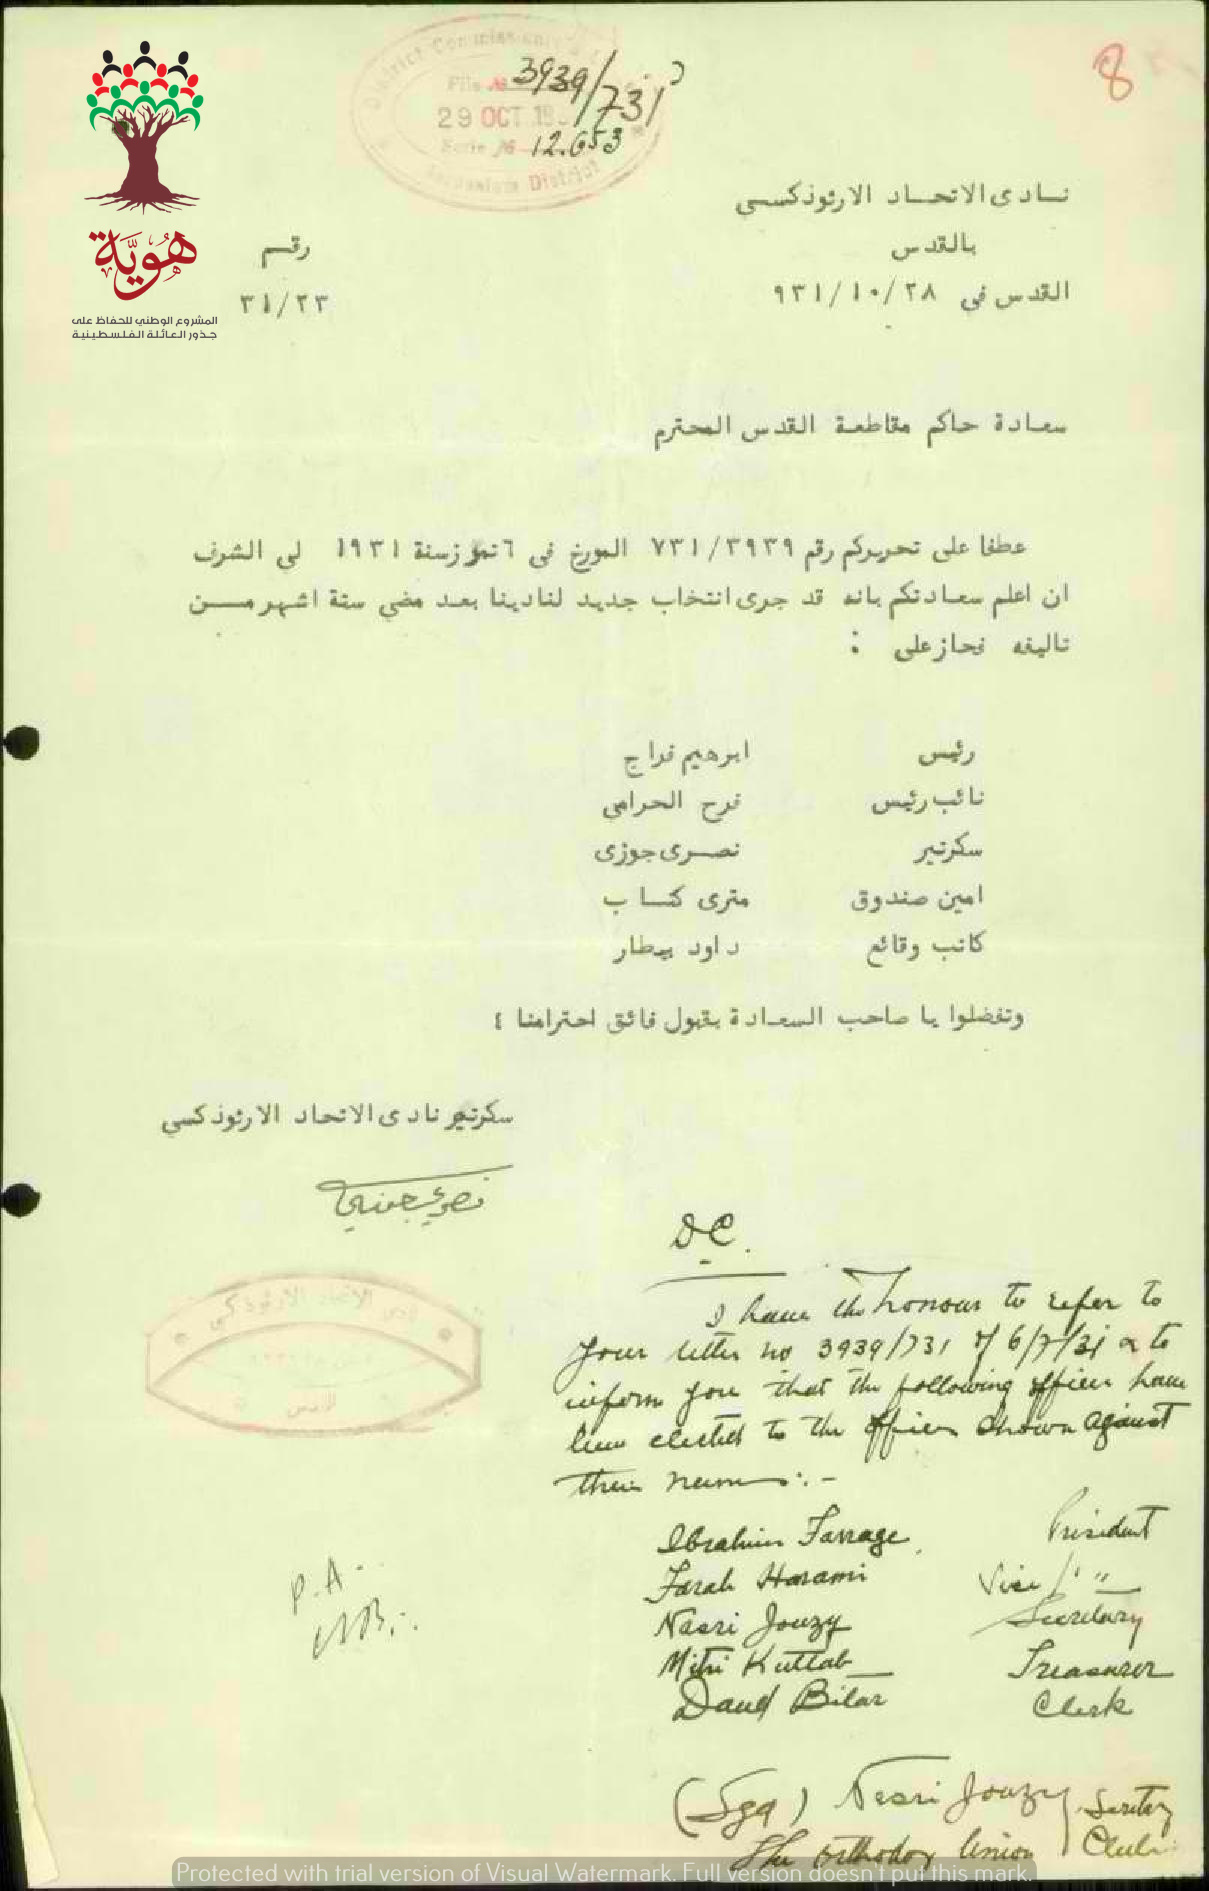 District Commissioner's
File № 3939/731
29 OCT 193
Serie № 12.653
Jerusalem District
8
هوية
المشروع الوطني للحفاظ على
جذور العائلة الفلسطينية
نادى الاتحاد الارثوذكسي
بالقدس
رقم
القدس فى ٢٨/١٠/٩٣١
٣١/٢٣
سعادة حاكم مقاطعة القدس المحترم
عطفا على تحريركم رقم ٧٣١/٣٩٣٩ المورخ فى ٦ تموز سنة ١٩٣١ لى الشرف
ان اعلم سعادتكم بانه قد جرى انتخاب جديد لنادينا بعد مضي ستة اشهر من
تاليفه فحاز على :
رئيس ابرهيم فراج
نائب رئيس فرح الحرامى
سكرتير نصرى جوزى
امين صندوق مترى كتاب
كاتب وقائع داود بيطار
وتفضلوا يا صاحب السعادة بقبول فائق احترامنا ؛
سكرتير نادى الاتحاد الارثوذكسي
نادى الاتحاد الارثوذكسي
القدس
D.C.
I have the honour to refer to
your letter no 3939/731 of 6/7/31 & to
inform you that the following officers have
been elected to the offices shown against
their names:-
Ibrahim Farrage President
Farah Harami Vice " "
Nasri Jouzy Secretary
Mitri Kuttab Treasurer
Daud Bitar Clerk
P.A.
(Sgd) Nasri Jouzy Secretary
The Orthodox Union Club
Protected with trial version of Visual Watermark. Full version doesn't put this mark.